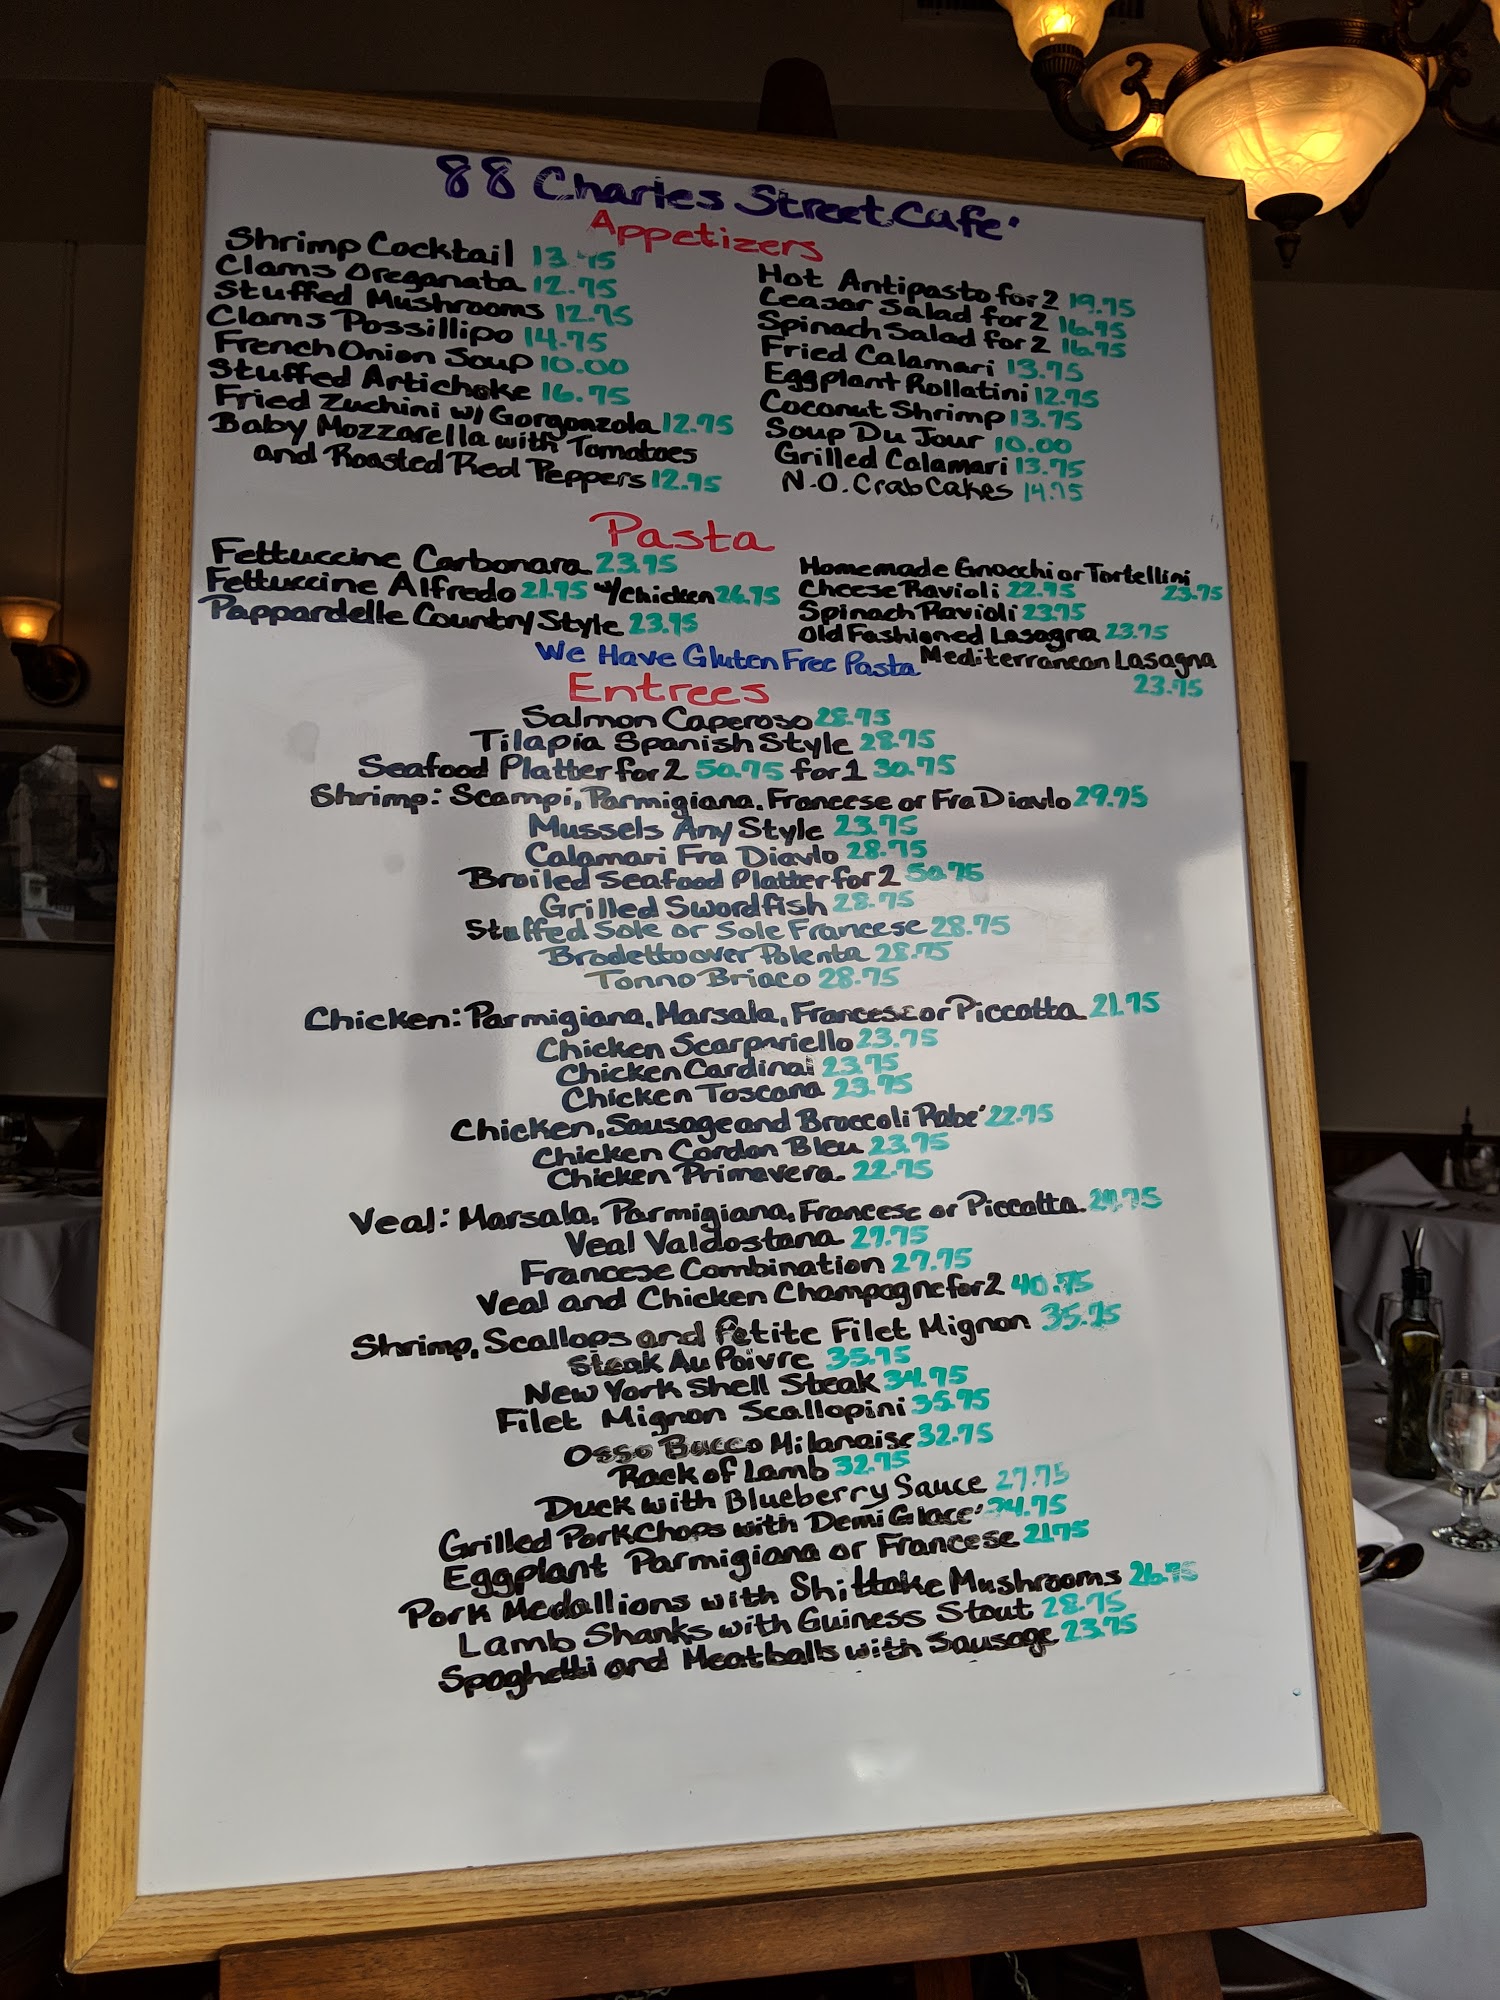 88 Charles Street Cafe'
Appetizers
Shrimp Cocktail 13.75
Clams Oreganata 12.75
Stuffed Mushrooms 12.75
Clams Possillipo 14.75
French Onion Soup 10.00
Stuffed Artichoke 16.75
Fried Zuchini w/ Gorgonzola 12.75
Baby Mozzarella with Tomatoes
and Roasted Red Peppers 12.75
Hot Antipasto for 2 19.75
Ceasar Salad for 2 16.75
Spinach Salad for 2 16.75
Fried Calamari 13.75
Eggplant Rollatini 12.75
Coconut Shrimp 13.75
Soup Du Jour 10.00
Grilled Calamari 13.75
N.O. Crab Cakes 14.75
Pasta
Fettuccine Carbonara 23.75
Fettuccine Alfredo 21.75 w/Chicken 26.75
Pappardelle Country Style 23.75
Homemade Gnocchi or Tortellini
23.75
Cheese Ravioli 22.75
Spinach Ravioli 23.75
Old Fashioned Lasagna 23.75
Mediterranean Lasagna
23.75
We Have Gluten Free Pasta
Entrees
Salmon Caperoso 28.75
Tilapia Spanish Style 28.75
Seafood Platter for 2 50.75 for 1 30.75
Shrimp: Scampi, Parmigiana, Francese or Fra Diavlo 29.75
Mussels Any Style 23.75
Calamari Fra Diavlo 28.75
Broiled Seafood Platter for 2 50.75
Grilled Swordfish 28.75
Stuffed Sole or Sole Francese 28.75
Brodetto over Polenta 28.75
Tonno Briaco 28.75
Chicken: Parmigiana, Marsala, Francese or Piccatta 21.75
Chicken Scarpariello 23.75
Chicken Cardinal 23.75
Chicken Toscana 23.75
Chicken, Sausage and Broccoli Rabe' 22.75
Chicken Cordon Bleu 23.75
Chicken Primavera 22.75
Veal: Marsala, Parmigiana, Francese or Piccatta
Veal Valdostana 27.75
Francese Combination 27.75
Veal and Chicken Champagne for 2 40.75
Shrimp, Scallops and Petite Filet Mignon 35.75
Steak Au Poivre 35.75
New York Shell Steak 34.75
Filet Mignon Scallopini 35.75
Osso Bucco Milanaise 32.75
Rack of Lamb 32.75
Duck with Blueberry Sauce 27.75
Grilled Pork Chops with Demi Glace'
Eggplant Parmigiana or Francese 21.75
Pork Medallions with Shittake Mushrooms 26.75
Lamb Shanks with Guiness Stout 28.75
Spaghetti and Meatballs with Sausage 23.75